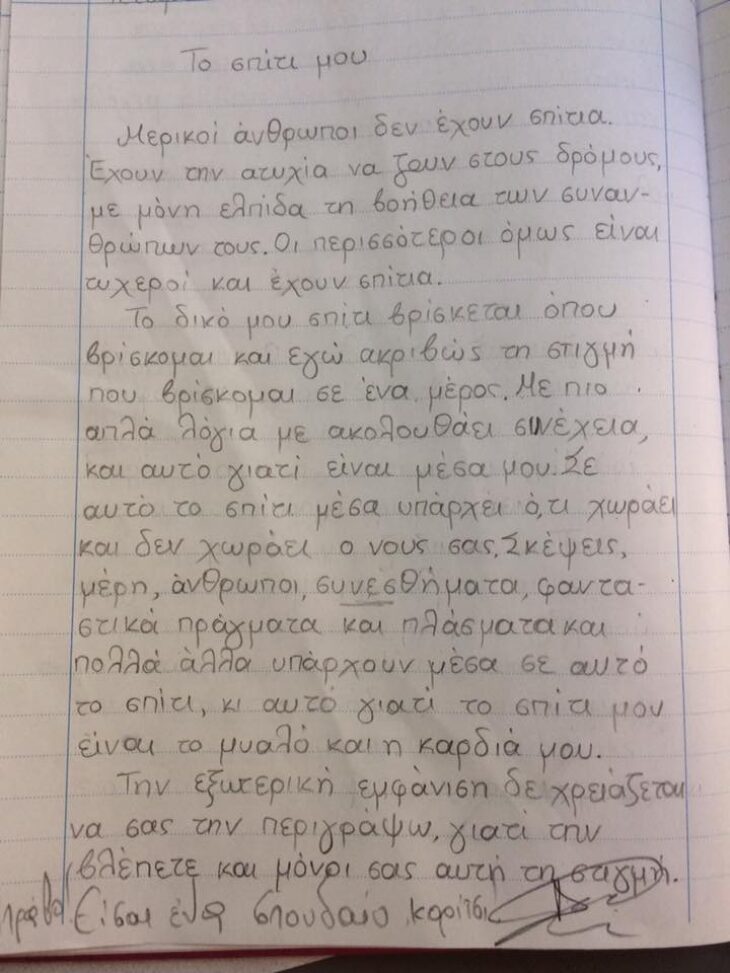 Το σπίτι μου
Μερικοί άνθρωποι δεν έχουν σπίτια.
Έχουν την ατυχία να ζουν στους δρόμους,
με μόνη ελπίδα τη βοήθεια των συναν-
θρώπων τους. Οι περισσότεροι όμως είναι
τυχεροί και έχουν σπίτια.
Το δικό μου σπίτι βρίσκεται όπου
βρίσκομαι και εγώ ακριβώς τη στιγμή
που βρίσκομαι σε ένα μέρος. Με πιο
απλά λόγια με ακολουθάει συνέχεια,
και αυτό γιατί είναι μέσα μου. Σε
αυτό το σπίτι μέσα υπάρχει ό,τι χωράει
και δεν χωράει ο νους σας. Σκέψεις,
μέρη, άνθρωποι, συνεσθήματα, φαντα-
στικά πράγματα και πλάσματα και
πολλά άλλα υπάρχουν μέσα σε αυτό
το σπίτι, κι αυτό γιατί το σπίτι μου
είναι το μυαλό και η καρδιά μου.
Την εξωτερική εμφάνιση δε χρειάζεται
να σας την περιγράψω, γιατί την
βλέπετε και μόνοι σας αυτή τη στιγμή.
Είσαι ένα σπουδαίο κορίτσι